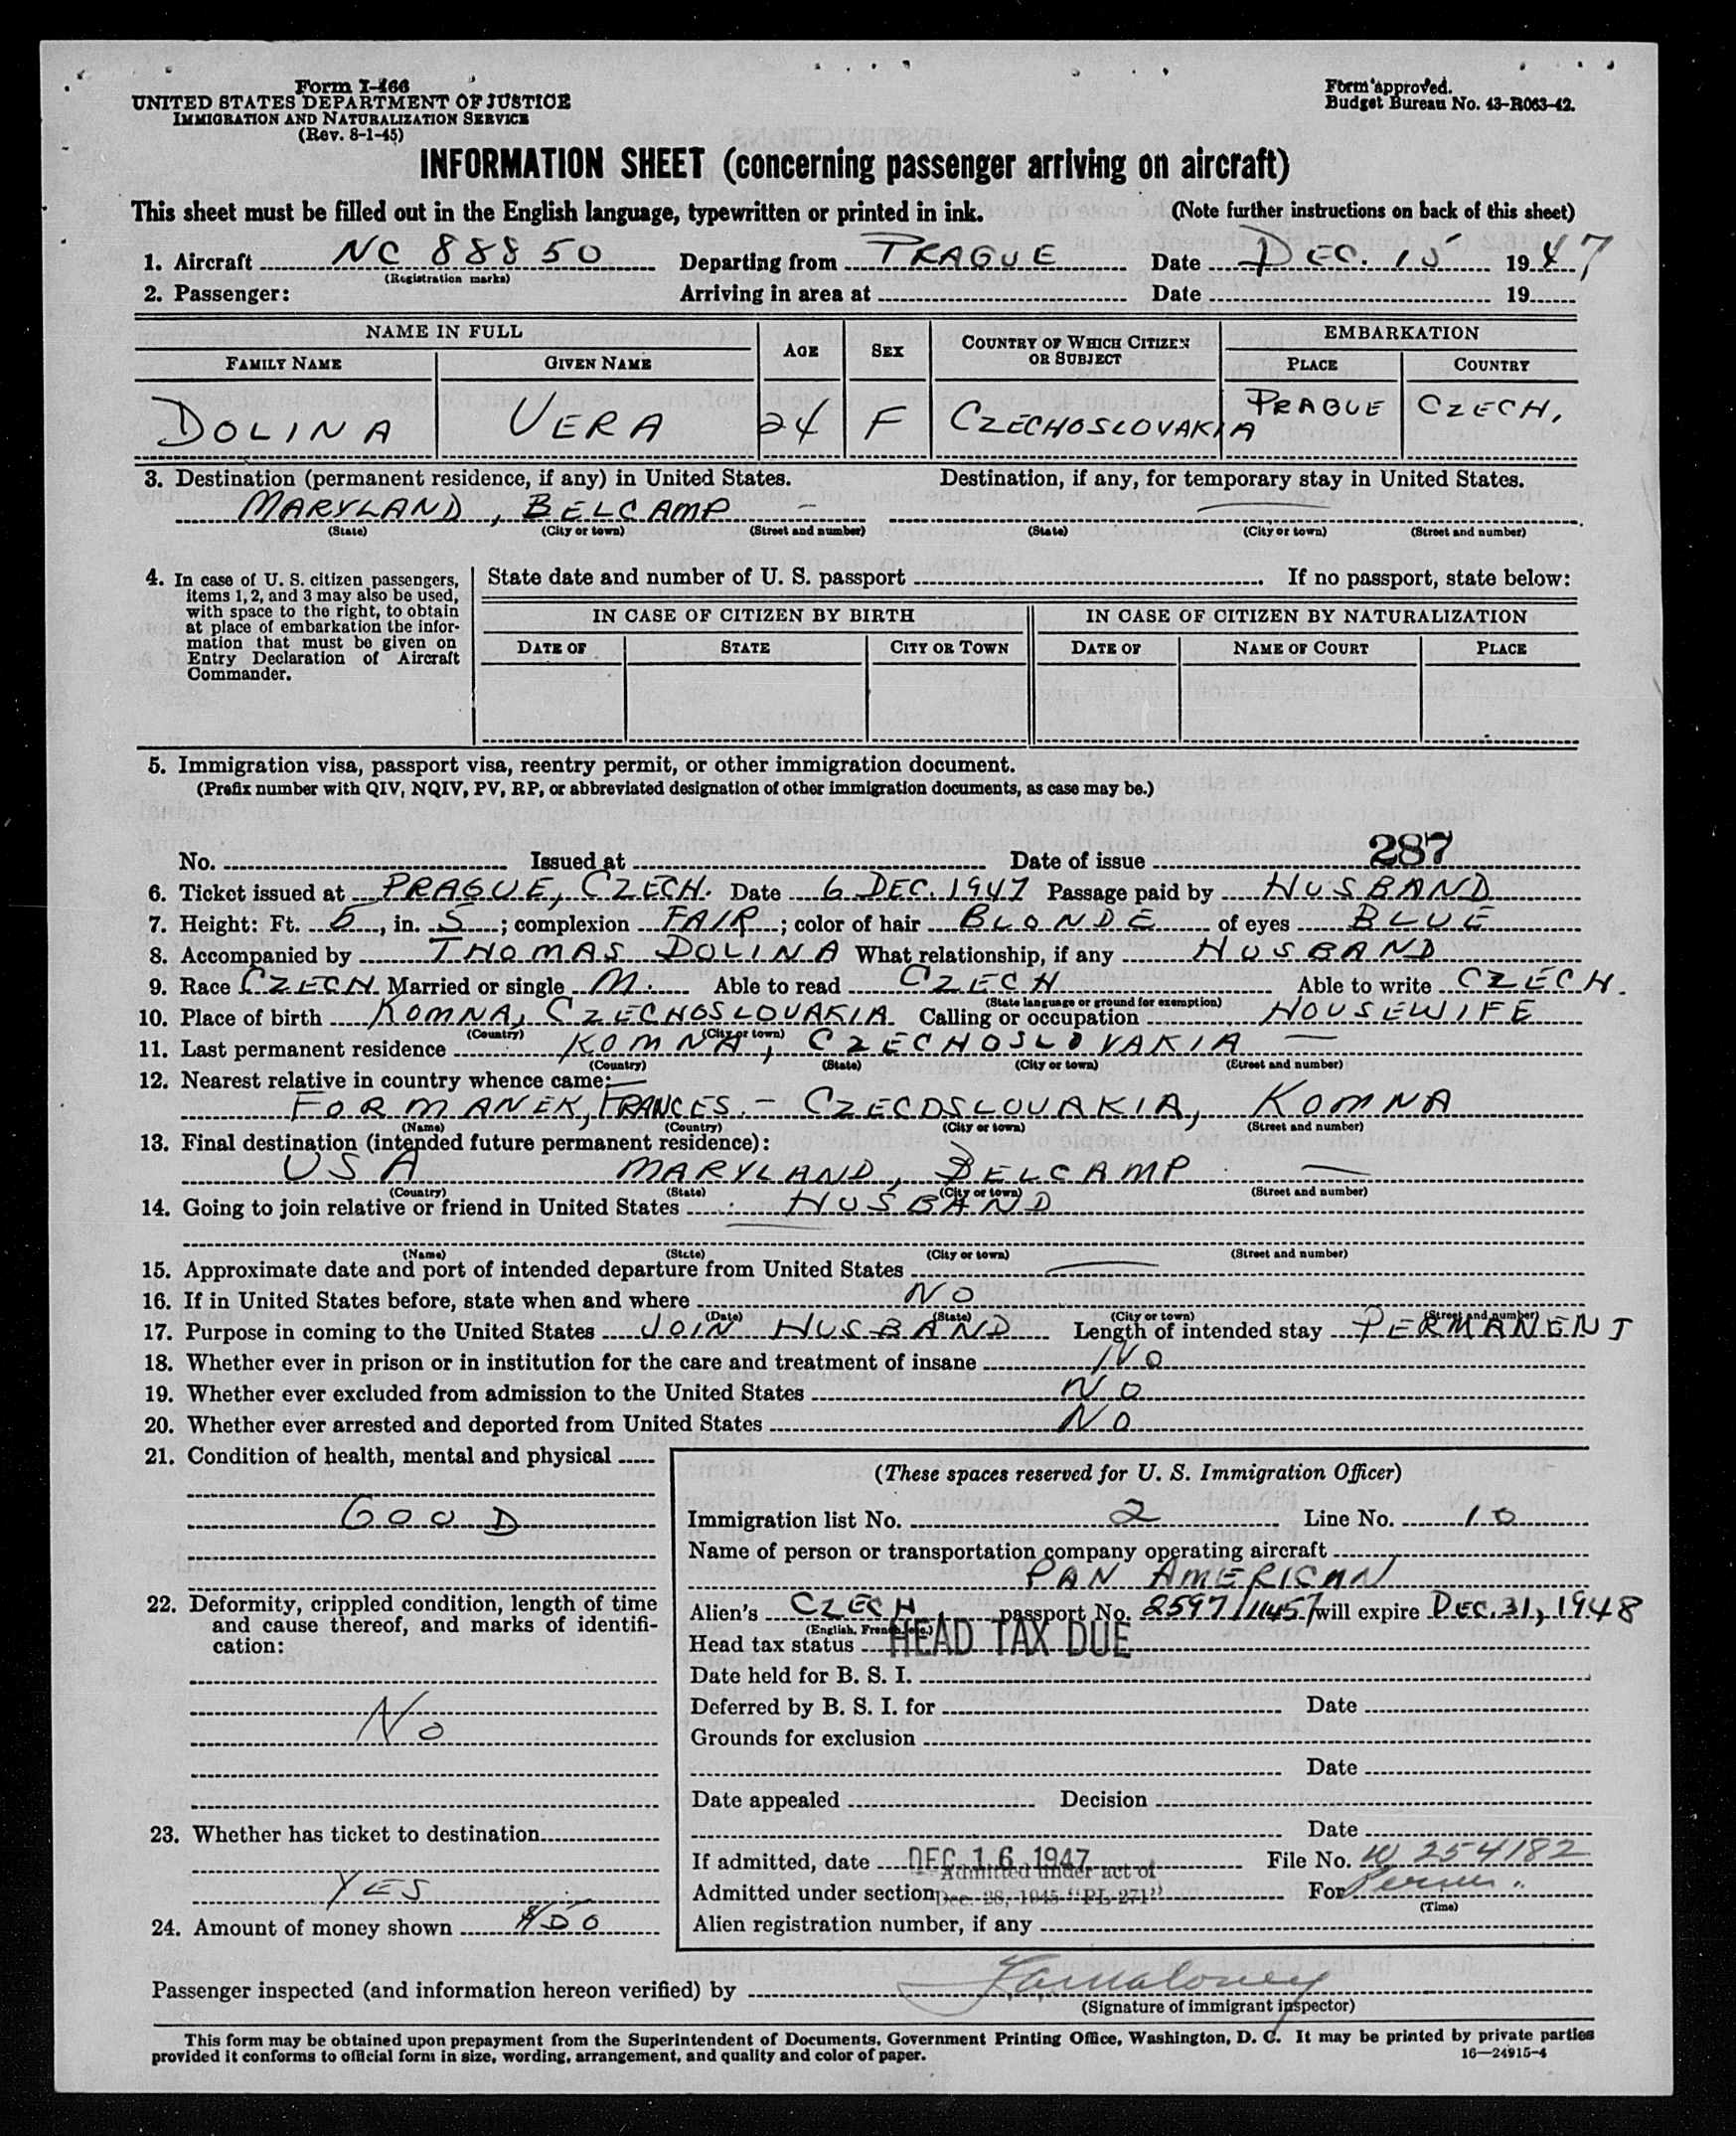 Form I-466
UNITED STATES DEPARTMENT OF JUSTICE
IMMIGRATION AND NATURALIZATION SERVICE
(Rev. 8-1-45)
Form approved.
Budget Bureau No. 43-R063-42.
INFORMATION SHEET (concerning passenger arriving on aircraft)
This sheet must be filled out in the English language, typewritten or printed in ink. (Note further instructions on back of this sheet)
1. Aircraft NC 88850 Departing from PRAGUE Date DEC. 15 1947
(Registration marks)
2. Passenger: Arriving in area at Date 19
NAME IN FULL AGE SEX COUNTRY OF WHICH CITIZEN OR SUBJECT EMBARKATION
FAMILY NAME GIVEN NAME PLACE COUNTRY
DOLINA VERA 24 F CZECHOSLOVAKIA PRAGUE CZECH.
3. Destination (permanent residence, if any) in United States. Destination, if any, for temporary stay in United States.
MARYLAND, BELCAMP —
(State) (City or town) (Street and number) (State) (City or town) (Street and number)
4. In case of U. S. citizen passengers, items 1, 2, and 3 may also be used, with space to the right, to obtain at place of embarkation the information that must be given on Entry Declaration of Aircraft Commander.
State date and number of U. S. passport . If no passport, state below:
IN CASE OF CITIZEN BY BIRTH IN CASE OF CITIZEN BY NATURALIZATION
DATE OF STATE CITY OR TOWN DATE OF NAME OF COURT PLACE
5. Immigration visa, passport visa, reentry permit, or other immigration document.
(Prefix number with QIV, NQIV, PV, RP, or abbreviated designation of other immigration documents, as case may be.)
No. Issued at Date of issue 287
6. Ticket issued at PRAGUE, CZECH. Date 6 DEC. 1947 Passage paid by HUSBAND
7. Height: Ft. 5, in. 5; complexion FAIR; color of hair BLONDE of eyes BLUE
8. Accompanied by THOMAS DOLINA What relationship, if any HUSBAND
9. Race CZECH Married or single M. Able to read CZECH Able to write CZECH.
(State language or ground for exemption)
10. Place of birth KOMNA, CZECHOSLOVAKIA Calling or occupation HOUSEWIFE
(Country) (City or town)
11. Last permanent residence KOMNA, CZECHOSLOVAKIA —
(Country) (State) (City or town) (Street and number)
12. Nearest relative in country whence came:
FORMANEK, FRANCES. – CZECOSLOUAKIA, KOMNA
(Name) (Country) (City or town) (Street and number)
13. Final destination (intended future permanent residence):
USA MARYLAND, BELCAMP —
(Country) (State) (City or town) (Street and number)
14. Going to join relative or friend in United States HUSBAND
(Name) (State) (City or town) (Street and number)
15. Approximate date and port of intended departure from United States —
16. If in United States before, state when and where NO
(Date) (State) (City or town) (Street and number)
17. Purpose in coming to the United States JOIN HUSBAND Length of intended stay PERMANENT
18. Whether ever in prison or in institution for the care and treatment of insane NO
19. Whether ever excluded from admission to the United States NO
20. Whether ever arrested and deported from United States NO
21. Condition of health, mental and physical
GOOD
22. Deformity, crippled condition, length of time and cause thereof, and marks of identification:
No
23. Whether has ticket to destination
YES
24. Amount of money shown $50
(These spaces reserved for U. S. Immigration Officer)
Immigration list No. 2 Line No. 10
Name of person or transportation company operating aircraft
PAN AMERICAN
Alien's CZECH passport No. 2597/1145/ will expire DEC. 31, 1948
(English, French, etc.)
Head tax status HEAD TAX DUE
Date held for B. S. I.
Deferred by B. S. I. for Date
Grounds for exclusion
Date
Date appealed Decision
Date
If admitted, date DEC 16 1947 File No. W 254182
Admitted under act of
Admitted under section Dec. 28, 1945 "PL 271" For Perm.
(Time)
Alien registration number, if any
Passenger inspected (and information hereon verified) by
(Signature of immigrant inspector)
This form may be obtained upon prepayment from the Superintendent of Documents, Government Printing Office, Washington, D. C. It may be printed by private parties
provided it conforms to official form in size, wording, arrangement, and quality and color of paper. 16—24915-4